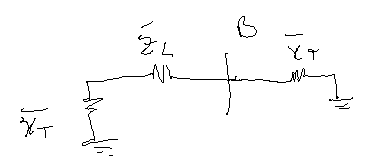 Z̅L B X̅T
X̅T